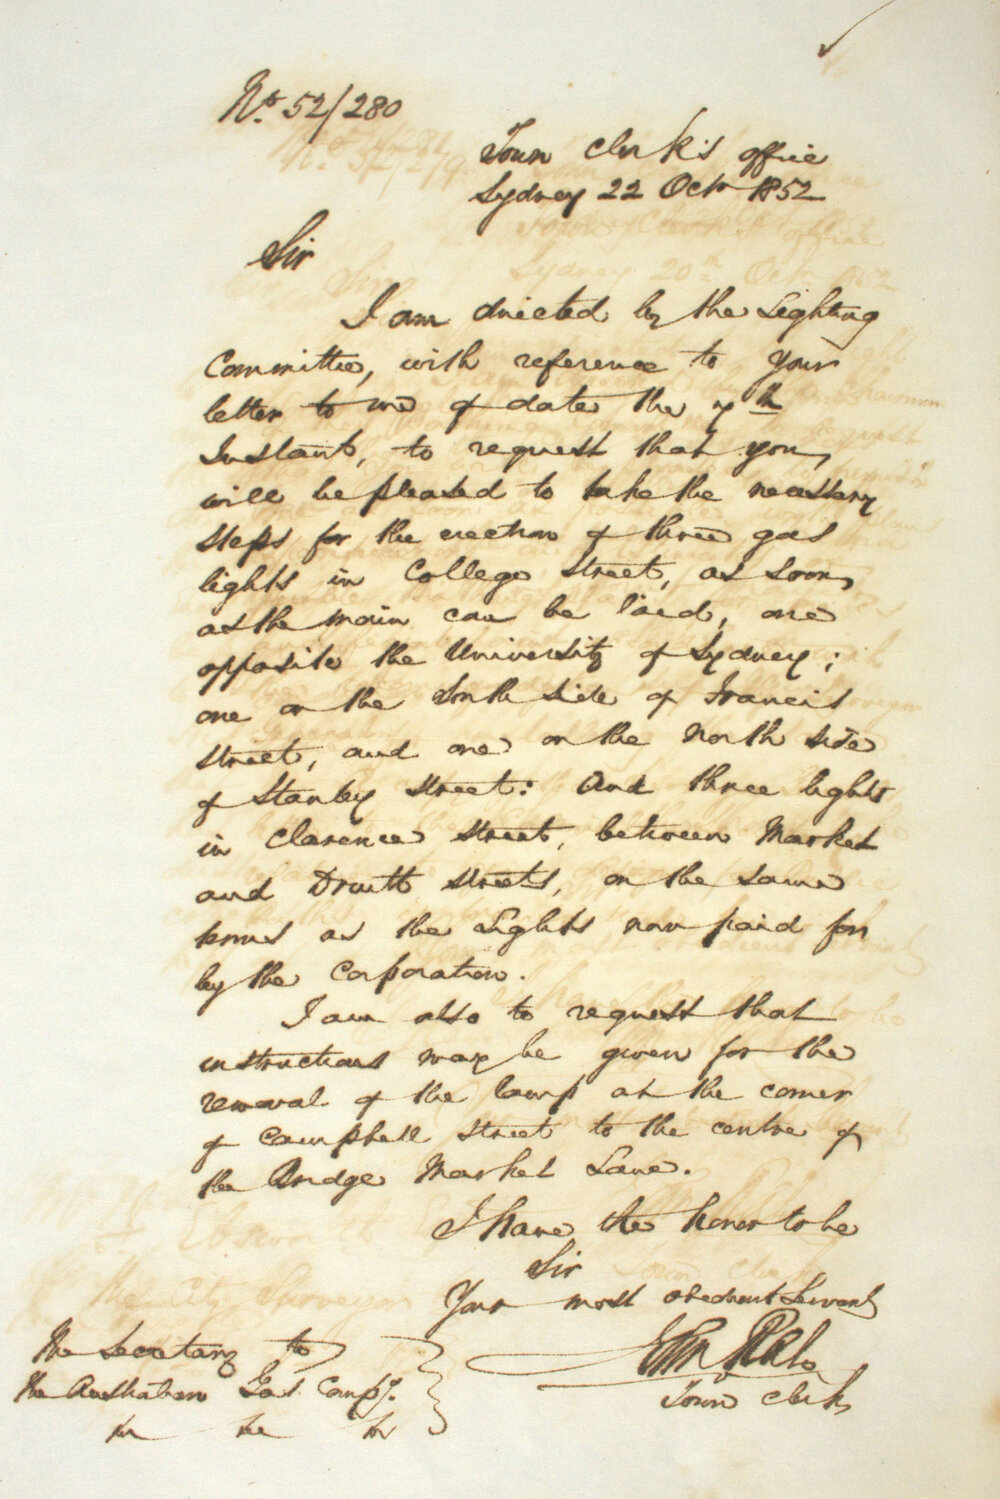 No. 52/280
Town Clerk's Office
Sydney 22 Octr 1852
Sir
I am directed by the Lighting
Committee, with reference to your
letter to me of date the 7th
Instant, to request that you
will be pleased to take the necessary
steps for the erection of three gas
lights in College Street, as soon
as the main can be laid, one
opposite the University of Sydney;
one on the South side of Francis
Street, and one on the North side
of Stanley Street: And three lights
in Clarence Street, between Market
and Druitt Streets, on the same
terms as the Lights now paid for
by the Corporation.
I am also to request that
instructions may be given for the
removal of the lamp at the corner
of Campbell Street to the centre of
the Bridge Market Lane.
I have the honor to be
Sir
Your most obedient Servant
Town Clerk
The Secretary to
the Australian Gas Compy.